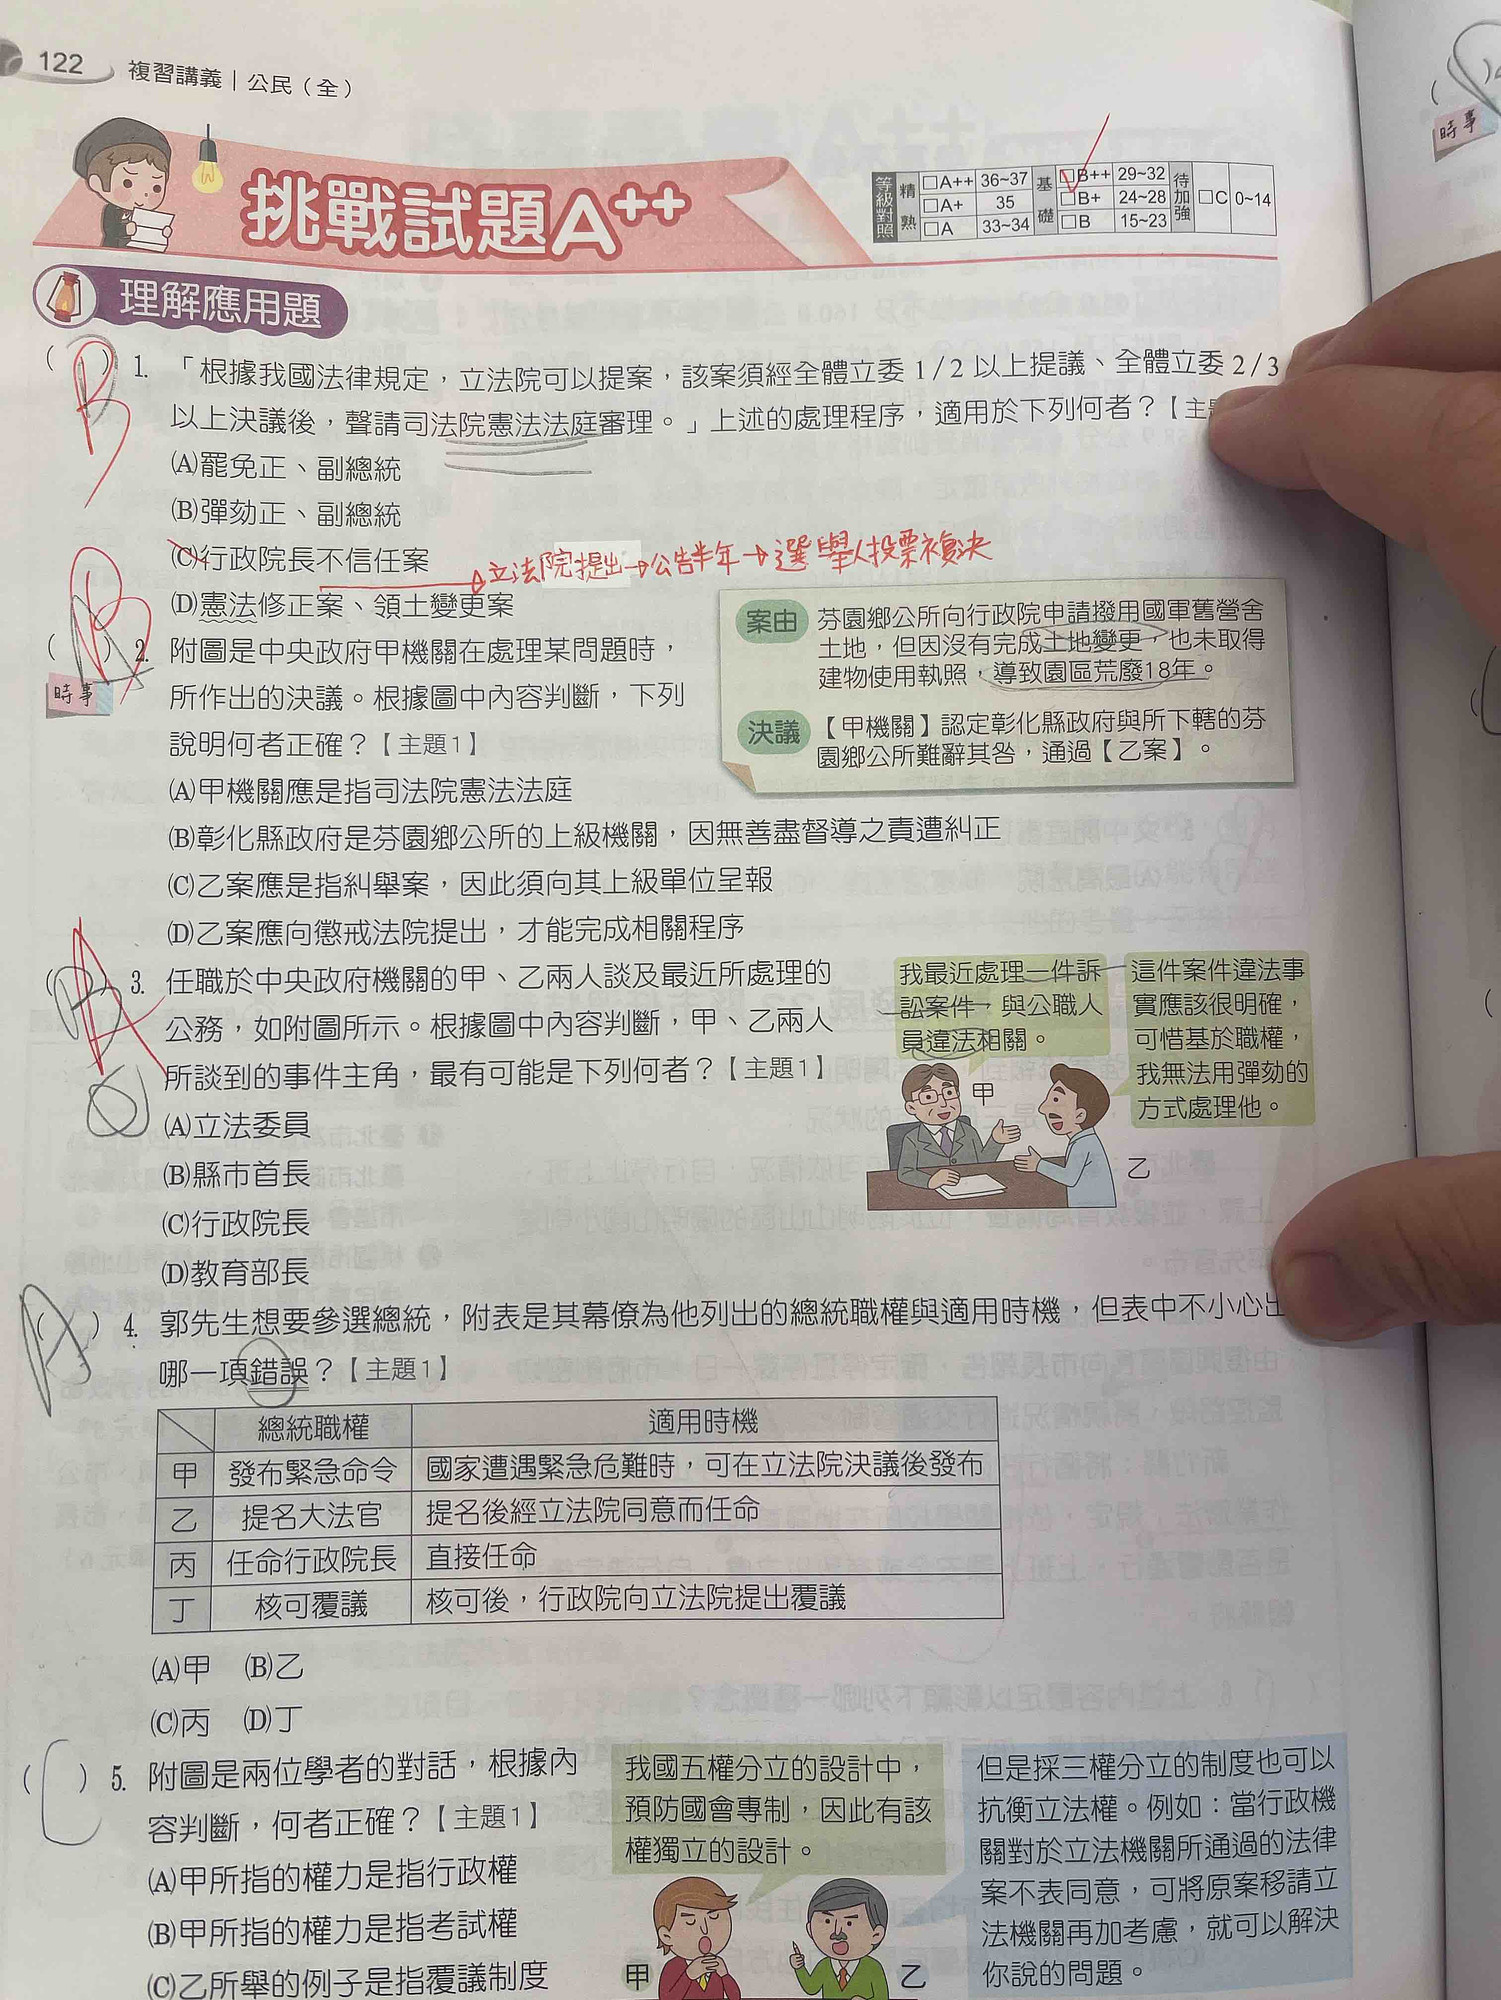 122 複習講義｜公民（全）
挑戰試題A++
等級對照 精熟 □A++ 36~37 □A+ 35 □A 33~34 基礎 □B++ 29~32 □B+ 24~28 □B 15~23 待加強 □C 0~14
理解應用題
( B ) 1. 「根據我國法律規定，立法院可以提案，該案須經全體立委 1/2 以上提議、全體立委 2/3
以上決議後，聲請司法院憲法法庭審理。」上述的處理程序，適用於下列何者？【主
(A)罷免正、副總統
(B)彈劾正、副總統
(C)行政院長不信任案
立法院提出→公告半年→選舉人投票複決
(D)憲法修正案、領土變更案
( B ) 2. 附圖是中央政府甲機關在處理某問題時，
時事
所作出的決議。根據圖中內容判斷，下列
說明何者正確？【主題1】
案由 芬園鄉公所向行政院申請撥用國軍舊營舍
土地，但因沒有完成土地變更，也未取得
建物使用執照，導致園區荒廢18年。
決議 【甲機關】認定彰化縣政府與所下轄的芬
園鄉公所難辭其咎，通過【乙案】。
(A)甲機關應是指司法院憲法法庭
(B)彰化縣政府是芬園鄉公所的上級機關，因無善盡督導之責遭糾正
(C)乙案應是指糾舉案，因此須向其上級單位呈報
(D)乙案應向懲戒法院提出，才能完成相關程序
( A ) 3. 任職於中央政府機關的甲、乙兩人談及最近所處理的
公務，如附圖所示。根據圖中內容判斷，甲、乙兩人
所談到的事件主角，最有可能是下列何者？【主題1】
我最近處理一件訴
訟案件，與公職人
員違法相關。
甲
這件案件違法事
實應該很明確，
可惜基於職權，
我無法用彈劾的
方式處理他。
乙
(A)立法委員
(B)縣市首長
(C)行政院長
(D)教育部長
( A ) 4. 郭先生想要參選總統，附表是其幕僚為他列出的總統職權與適用時機，但表中不小心出
哪一項錯誤？【主題1】
總統職權 適用時機
甲 發布緊急命令 國家遭遇緊急危難時，可在立法院決議後發布
乙 提名大法官 提名後經立法院同意而任命
丙 任命行政院長 直接任命
丁 核可覆議 核可後，行政院向立法院提出覆議
(A)甲 (B)乙
(C)丙 (D)丁
( C ) 5. 附圖是兩位學者的對話，根據內
容判斷，何者正確？【主題1】
(A)甲所指的權力是指行政權
(B)甲所指的權力是指考試權
(C)乙所舉的例子是指覆議制度
我國五權分立的設計中，
預防國會專制，因此有該
權獨立的設計。
甲
但是採三權分立的制度也可以
抗衡立法權。例如：當行政機
關對於立法機關所通過的法律
案不表同意，可將原案移請立
法機關再加考慮，就可以解決
你說的問題。
乙
時事